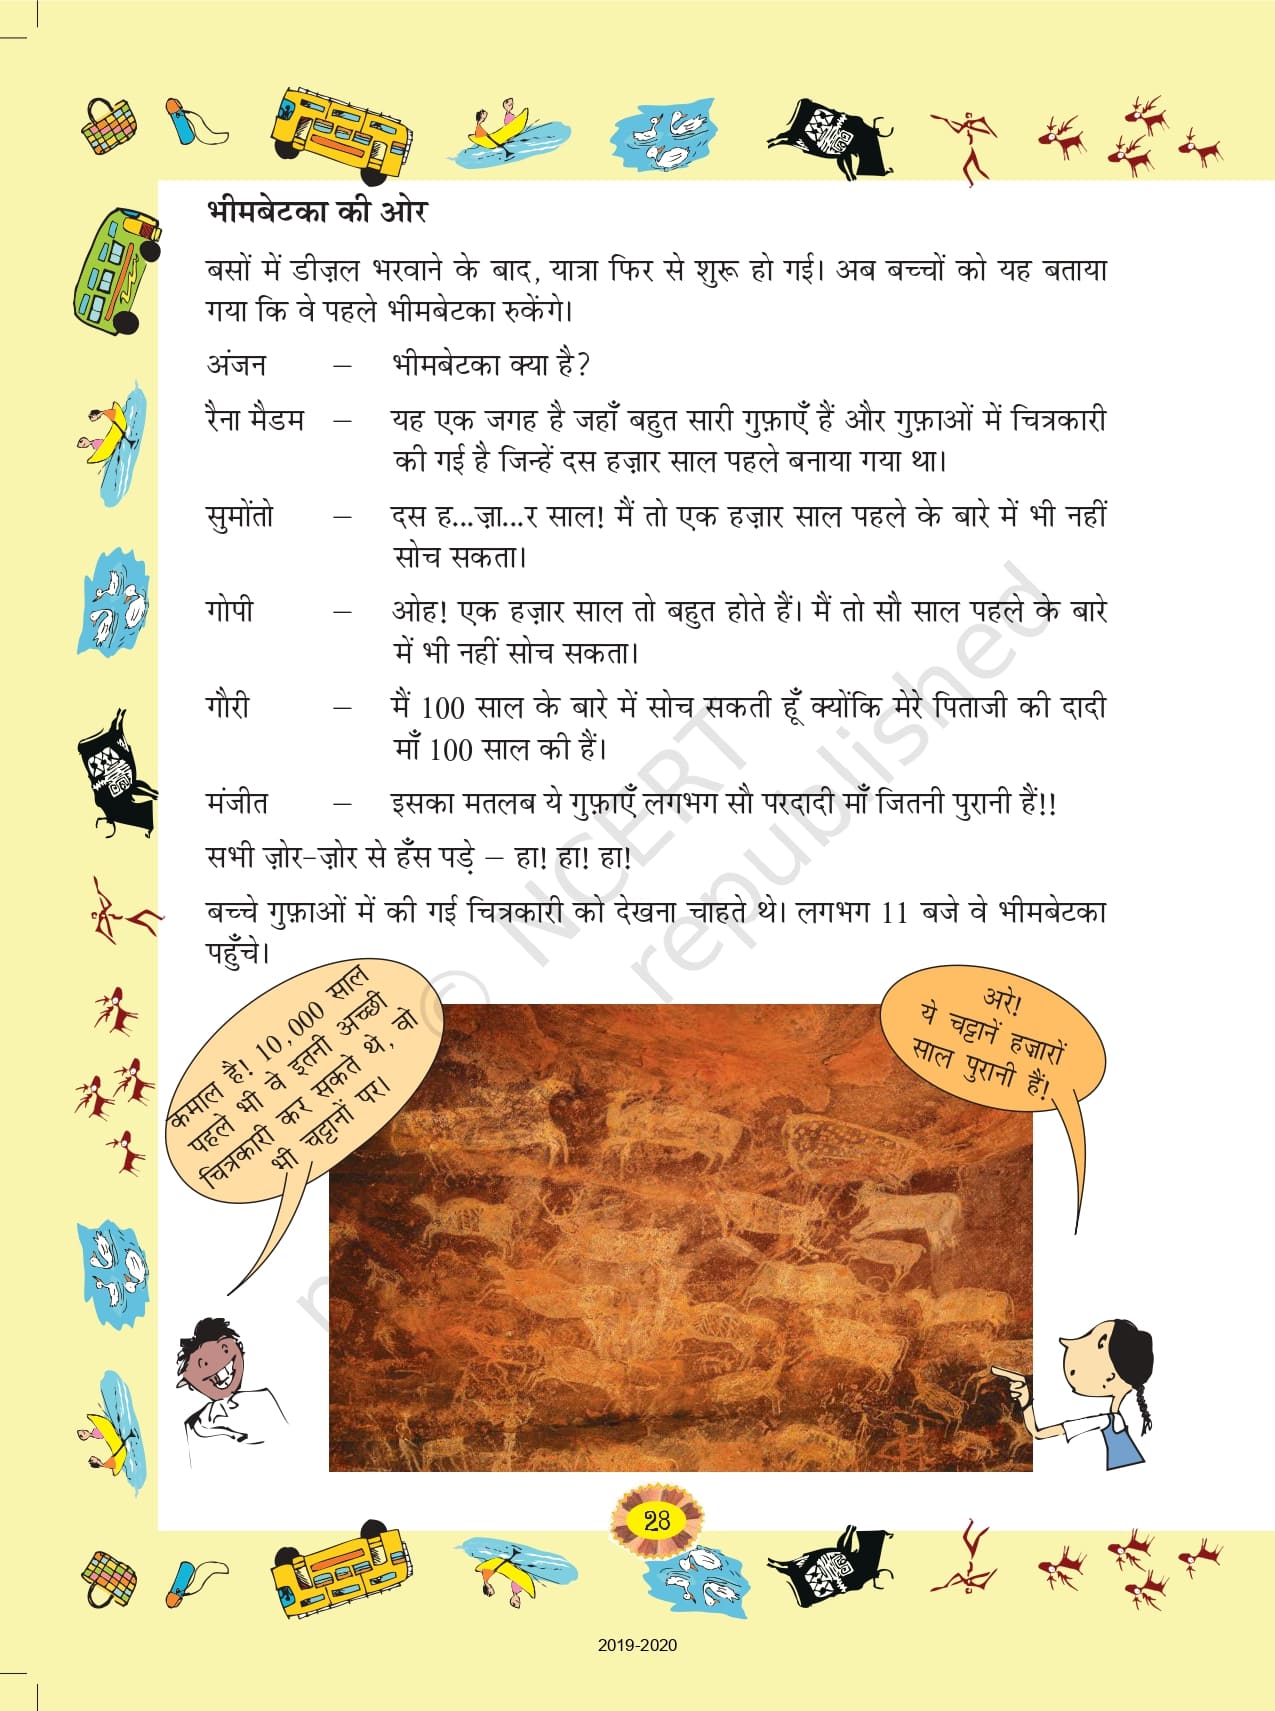 भीमबेटका की ओर
बसों में डीज़ल भरवाने के बाद, यात्रा फिर से शुरू हो गई। अब बच्चों को यह बताया
गया कि वे पहले भीमबेटका रुकेंगे।
अंजन – भीमबेटका क्या है?
रैना मैडम – यह एक जगह है जहाँ बहुत सारी गुफ़ाएँ हैं और गुफ़ाओं में चित्रकारी
की गई है जिन्हें दस हज़ार साल पहले बनाया गया था।
सुमोंतो – दस ह...ज़ा...र साल! मैं तो एक हज़ार साल पहले के बारे में भी नहीं
सोच सकता।
गोपी – ओह! एक हज़ार साल तो बहुत होते हैं। मैं तो सौ साल पहले के बारे
में भी नहीं सोच सकता।
गौरी – मैं 100 साल के बारे में सोच सकती हूँ क्योंकि मेरे पिताजी की दादी
माँ 100 साल की हैं।
मंजीत – इसका मतलब ये गुफ़ाएँ लगभग सौ परदादी माँ जितनी पुरानी हैं!!
सभी ज़ोर-ज़ोर से हँस पड़े – हा! हा! हा!
बच्चे गुफ़ाओं में की गई चित्रकारी को देखना चाहते थे। लगभग 11 बजे वे भीमबेटका
पहुँचे।
कमाल है! 10,000 साल
पहले भी वे इतनी अच्छी
चित्रकारी कर सकते थे, वो
भी चट्टानों पर।
अरे!
ये चट्टानें हज़ारों
साल पुरानी हैं!
© NCERT
republished
28
2019-2020